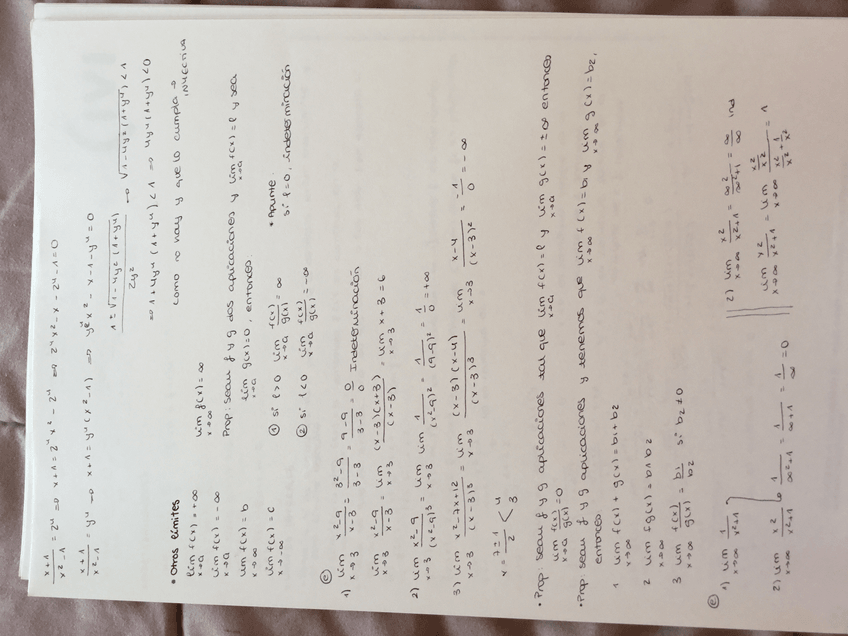 x+1/x²-1 = 2⁴ ⇒ x+1 = 2⁴x² - 2⁴ ⇒ 2⁴x² - x - 2⁴ - 1 = 0
x+1/x²-1 = y⁴ → x+1 = y⁴(x²-1) ⇒ y⁴x² - x - 1 - y⁴ = 0
1 ± √1-4y²(1+y⁴) / 2y² → √1-4y²(1+y⁴) < 1
⇒ 1+4y⁴(1+y⁴) < 1 ⇒ 4y⁴(1+y⁴) < 0
como no hay y que lo cumpla → INYECTIVA
• Otros límites
lím x→a f(x) = +∞ lím x→∞ f(x) = ∞
lím x→a f(x) = -∞
lím x→∞ f(x) = b
lím x→-∞ f(x) = c
Prop: sean f y g dos aplicaciones y lím x→a f(x) = l y sea
lím x→a g(x) = 0, entonces
① si l>0 lím x→a f(x)/g(x) = ∞
② si l<0 lím x→a f(x)/g(x) = -∞
* Apunte.
si l=0, indeterminación
ⓔ
1) lím x→3 x²-9/x-3 = 3²-9/3-3 = 9-9/3-3 = 0/0 Indeterminación
lím x→3 x²-9/x-3 = lím x→3 (x-3)(x+3)/(x-3) = lím x→3 x+3 = 6
2) lím x→3 x²-9/(x²-9)³ = lím x→3 1/(x²-9)² = 1/(9-9)² = 1/0 = +∞
3) lím x→3 x²-7x+12/(x-3)³ = lím x→3 (x-3)(x-4)/(x-3)³ = lím x→3 x-4/(x-3)² = -1/0 = -∞
x = 7±1/2 < 4 3
• Prop: sean f y g aplicaciones tal que lím x→a f(x) = l y lím x→a g(x) = ±∞ entonces
lím x→a f(x)/g(x) = 0
• Prop: sean f y g aplicaciones y tenemos que lím x→∞ f(x) = b1 y lím x→∞ g(x) = b2,
entonces
1 lím x→∞ f(x) + g(x) = b1 + b2
2 lím x→∞ fg(x) = b1 b2
3 lím x→∞ f(x)/g(x) = b1/b2 si b2 ≠ 0
ⓔ
1) lím x→∞ 1/x²+1
2) lím x→∞ x²/x²+1 1/∞²+1 = 1/∞+1 = 1/∞ = 0
2) lím x→∞ x²/x²+1 = ∞²/∞²+1 = ∞/∞ ind
lím x→∞ x²/x²+1 = lím x→∞ x²/x² / x²/x² + 1/x² = 1